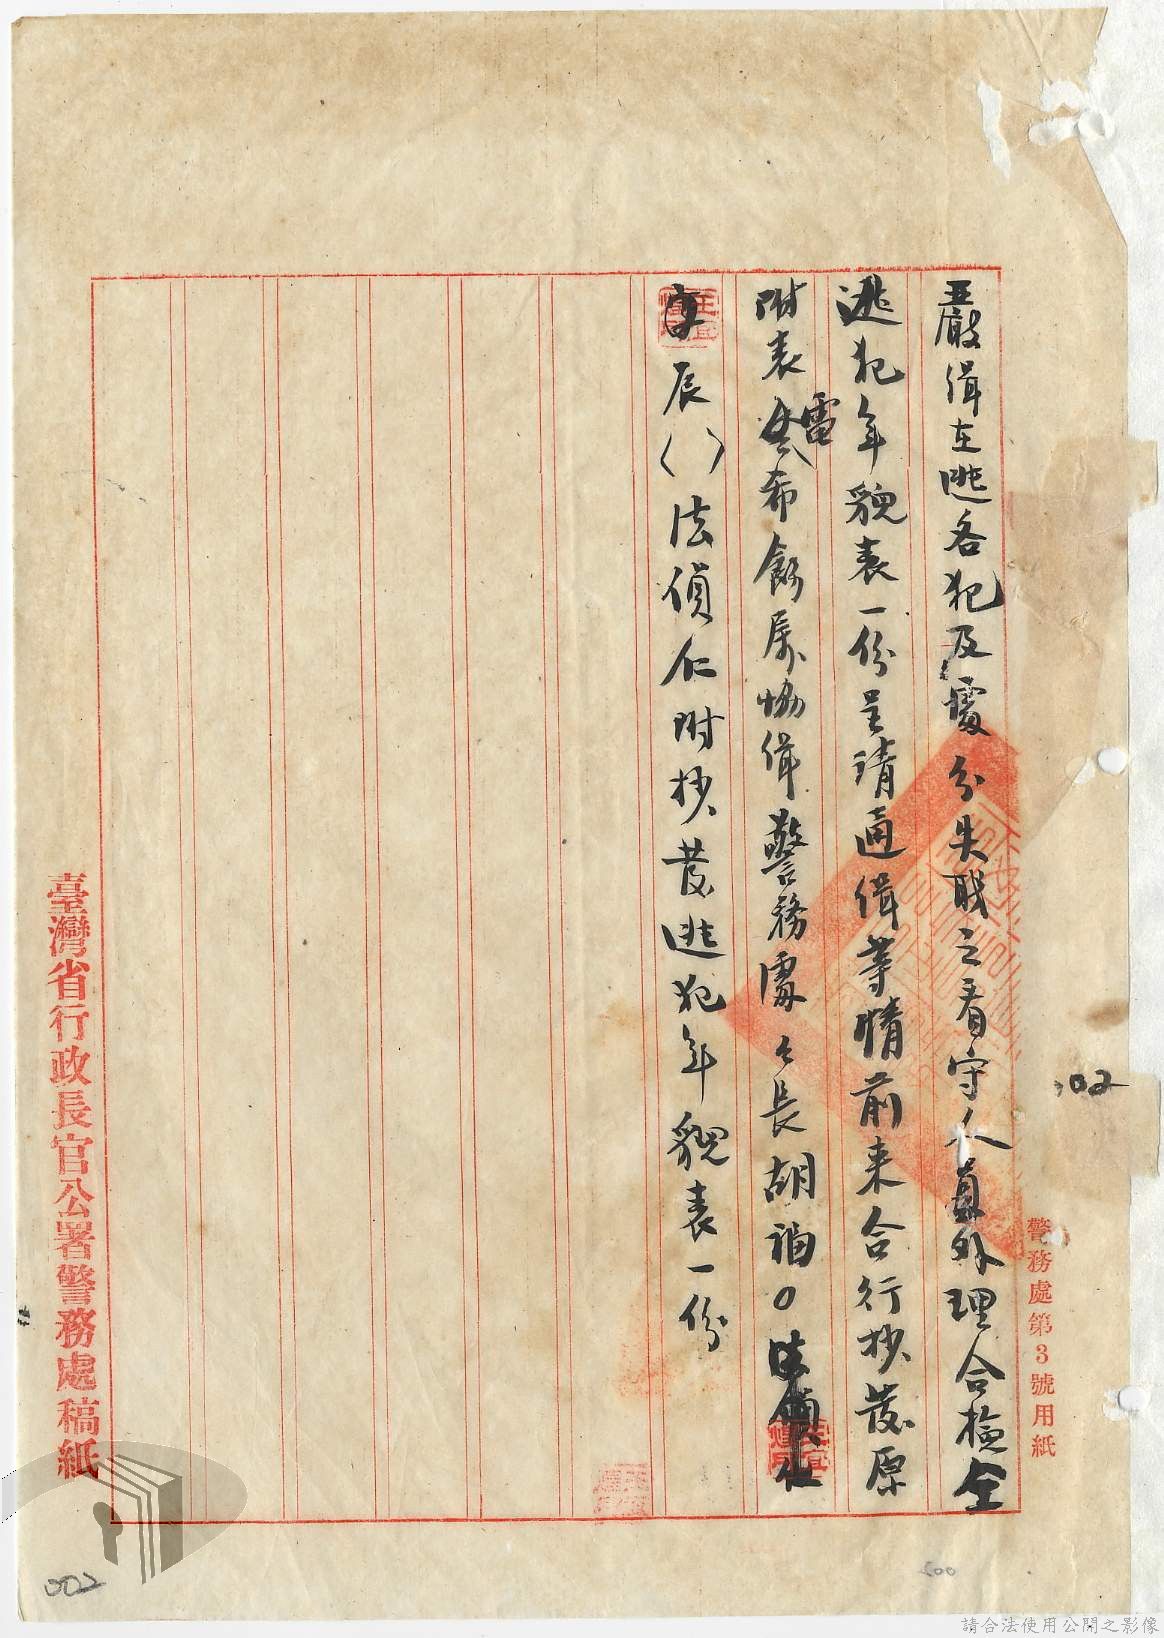 嚴緝在逃各犯及處分失職之看守人員外理合檢仝
逃犯年貌表一份呈請通緝等情前来合行抄發原
附表電希飭屬協緝警務處々長胡福0
辰()法偵仁附抄發逃犯年貌表一份
臺灣省行政長官公署警務處稿紙
警務處第3號用紙
02
002
500
請合法使用公開之影像